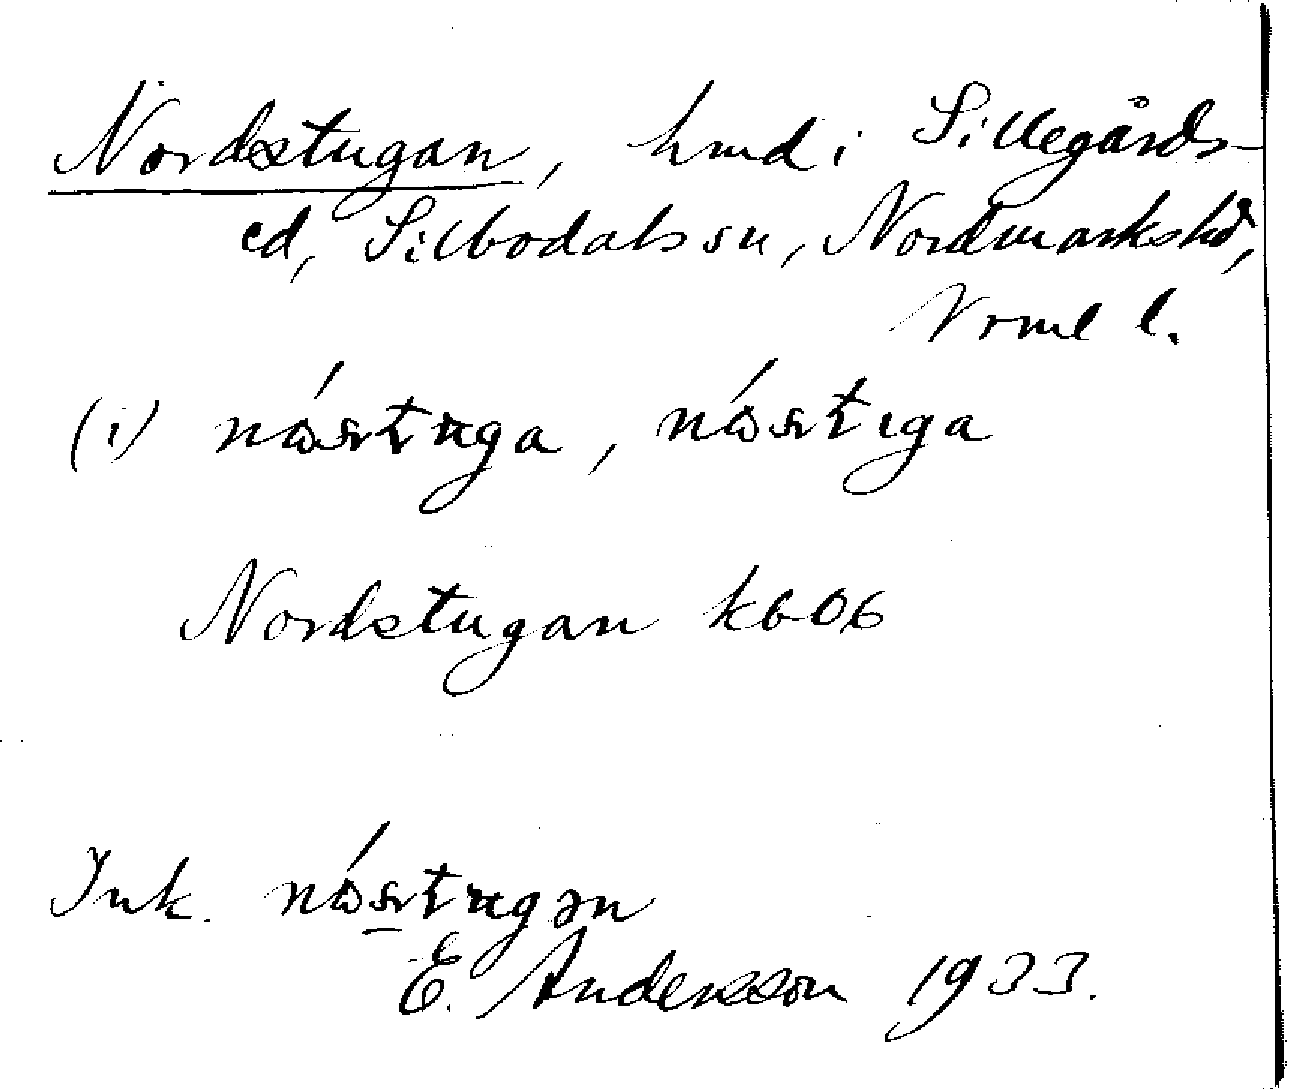 Nordstugan, hmd i Sillegårds-
ed, Silbodals sn, Nordmarks hd,
Vrml l.
(i) nó̤stuga, nó̤stiga
Nordstugan kbOb
Ink. nó̤stugən
E. Andersson 1933.